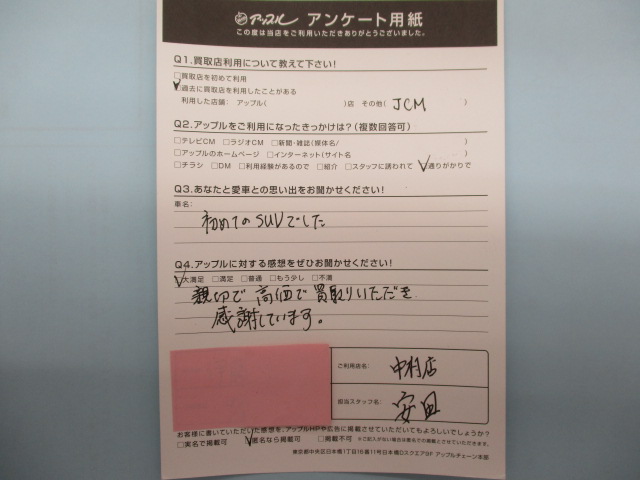 アップル アンケート用紙
この度は当店をご利用いただきありがとうございました。
Q1.買取店利用について教えて下さい!
□買取店を初めて利用
☑過去に買取店を利用したことがある
利用した店舗: アップル( )店 その他( JCM )
Q2.アップルをご利用になったきっかけは?(複数回答可)
□テレビCM □ラジオCM □新聞・雑誌(媒体名/ )
□アップルのホームページ □インターネット(サイト名 )
□チラシ □DM □利用経験があるので □紹介 □スタッフに誘われて ☑通りがかりで
Q3.あなたと愛車との思い出をお聞かせください!
車名:
初めてのSUVでした
Q4.アップルに対する感想をぜひお聞かせください!
☑大満足 □満足 □普通 □もう少し □不満
親切で高価で買取りいただき
感謝しています。
ご利用店名: 中村店
担当スタッフ名: 安田
お客様に書いていただいた感想を、アップルHPや広告に掲載させていただいてもよろしいでしょうか?
□実名で掲載可 ☑匿名なら掲載可 □掲載不可 ※ご記入がない場合は匿名での掲載とさせていただきます。
東京都中央区日本橋1丁目16番11号日本橋DスクエアBF アップルチェーン本部